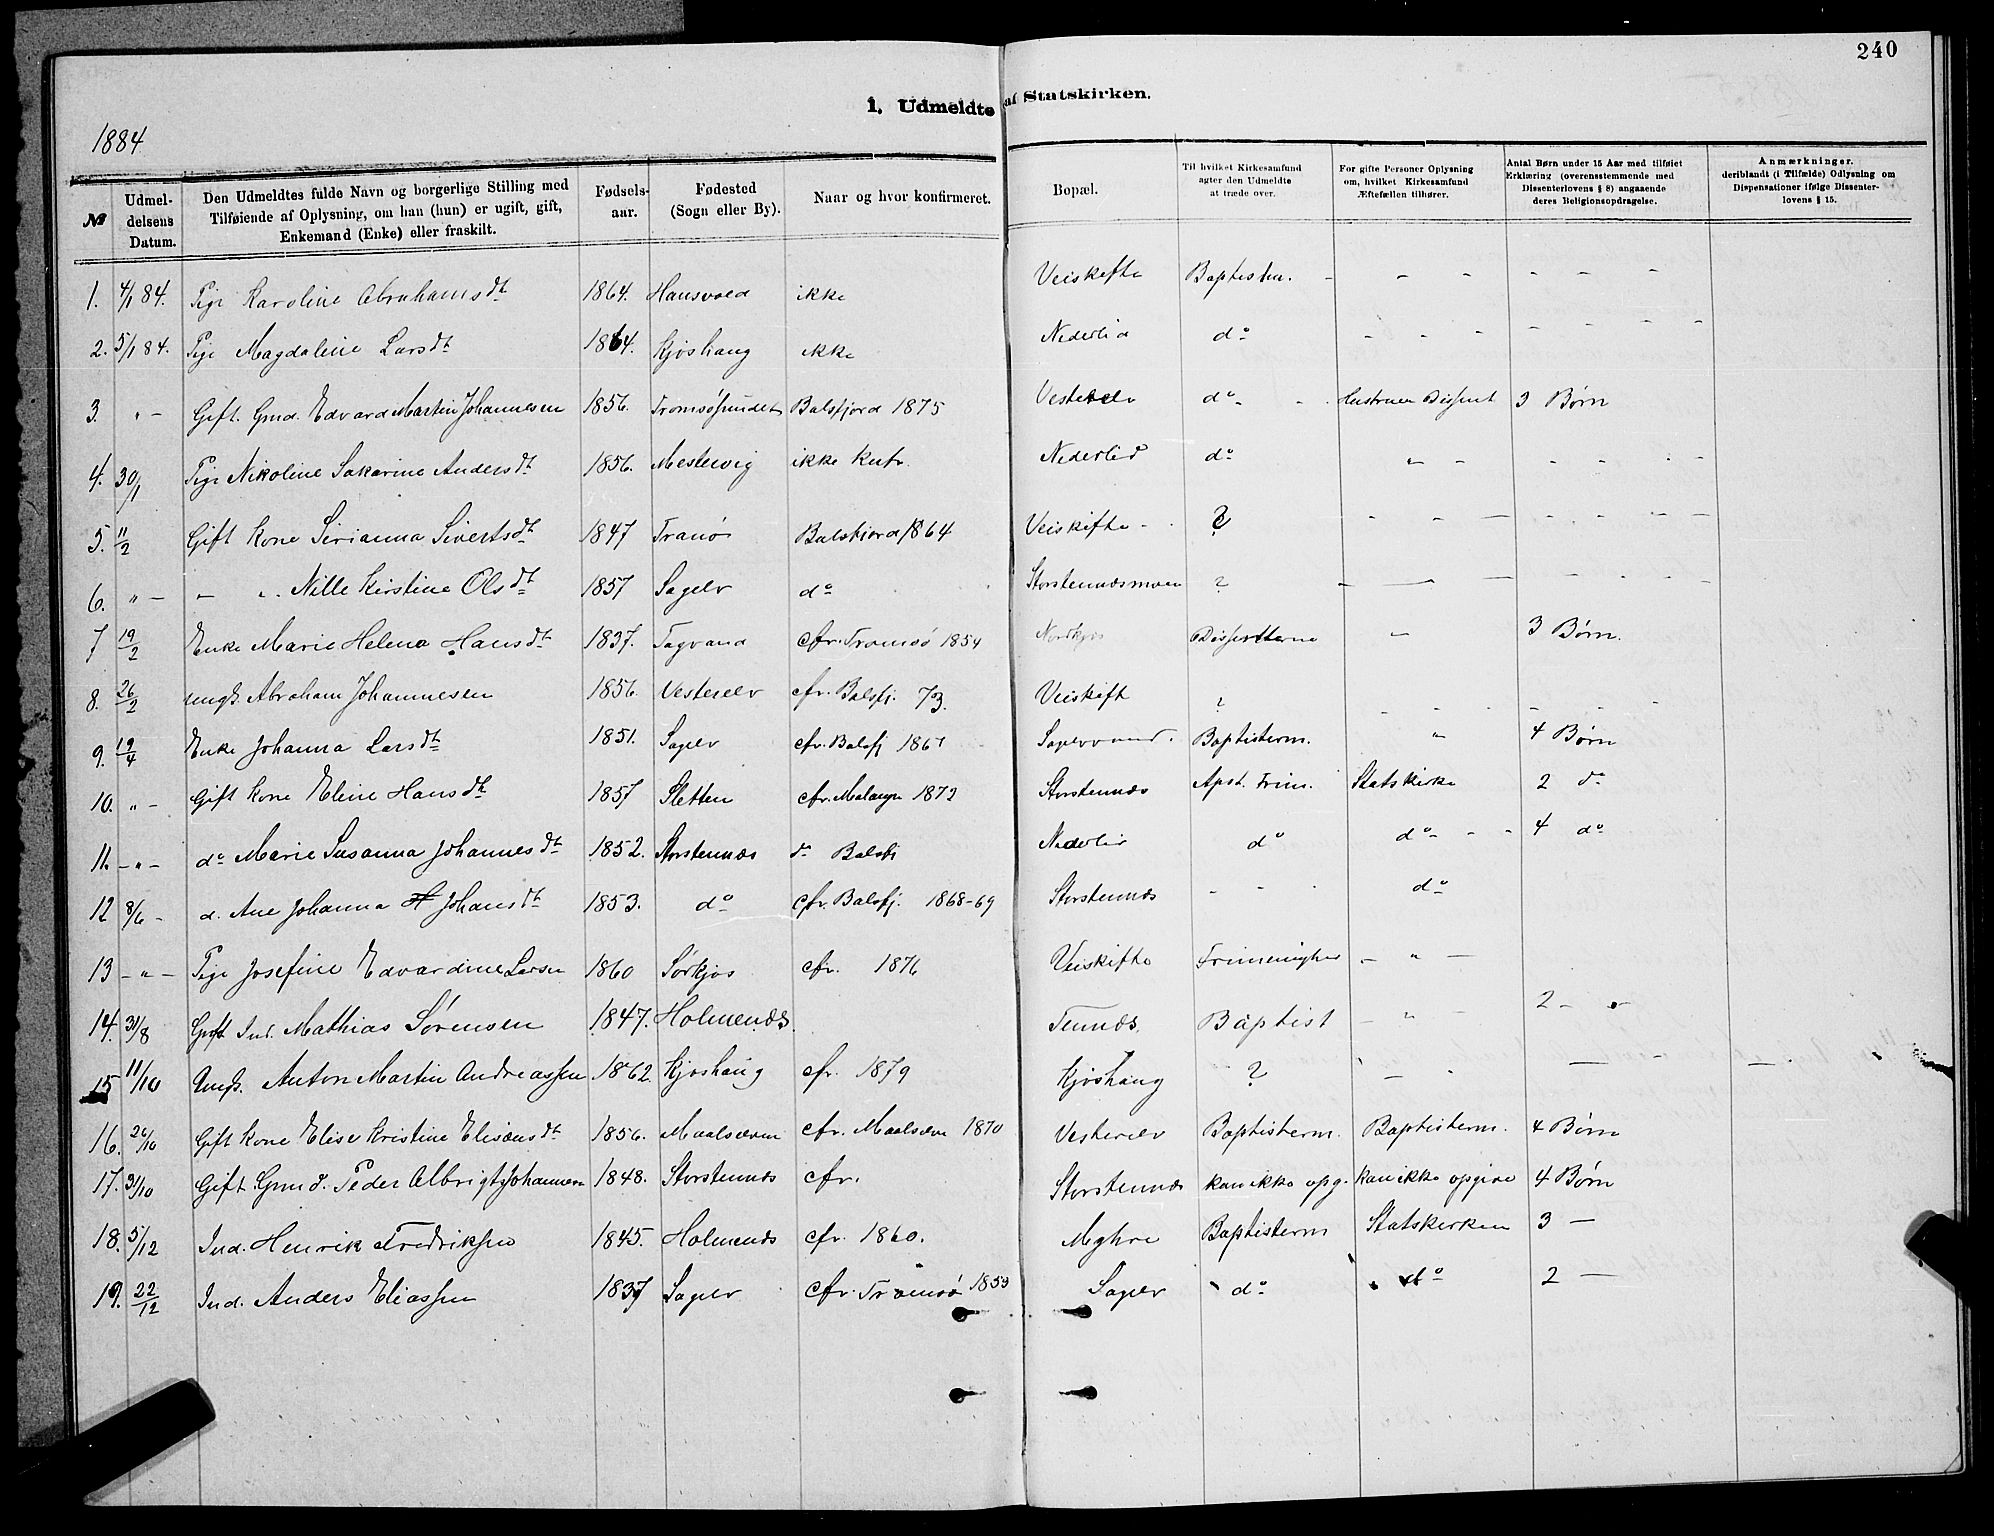 240
1. Udmeldte af Statskirken.
1884
№ | Udmeldelsens Datum. | Den Udmeldtes fulde Navn og borgerlige Stilling med Tilføiende af Oplysning, om han (hun) er ugift, gift, Enkemand (Enke) eller fraskilt. | Fødselsaar. | Fødested (Sogn eller By). | Naar og hvor konfirmeret. | Bopæl. | Til hvilket Kirkesamfund agter den Udmeldte at træde over. | For gifte Personer Oplysning om, hvilket Kirkesamfund Ægtefællen tilhører. | Antal Børn under 15 Aar med tilføiet Erklæring (overensstemmende med Dissenterlovens § 8) angaaende deres Religionsopdragelse. | Anmærkninger. deriblandt (i Tilfælde) Odlysning om Dispensationer ifølge Dissenterlovens § 15.
1. 4/1 84. Pige Karoline Abrahamsdt 1864. Hansvold ikke Veiskifte Baptister. - - - - - -
2. 5/1 84. Pige Magdaline Larsdt 1864. Kjøshaug ikke Nederlid do - - - - - -
3. " - Gift. Gmd. Edvard Martin Johannesen 1856. Tromsøsundet Balsfjord 1875 Vesterelv do - Hustruen Dissent 3 Børn
4. 30/1 Pige Nikoline Sakarine Andersdt 1856. Mestervig ikke Nederlid do " - - - - -
5. 11/2 Gift Kone Sirianna Sivertsdt 1847 Tranø Balsfjord 1864 Veiskifte - ? - - - - - - -
6. " - - " Nille Kirstine Olsdt 1857 Sagelv do Storstennæsmoen ? - - - - - - -
7 19/2 Enke Marie Helena Hansdt 1837. Tagvand cfr. Tromsø 1854 Nordkjos Dissenterne - 3 Børn.
8. 26/2 ungk. Abraham Johannesen 1856. Vesterelv cfr. Balsfj. 73. Veiskift ? - - - - - -
9. 19/4 Enke Johanna Larsdt 1851. Sagelv cfr. Balsfj 1867 Sagelvvand. Baptisterm. " 4 Børn
10. " - Gift Kone Eline Hansdt 1857 Sletten cfr. Malangen 1872 Storstennæs Apst. Frim. Statskirke 2 do
11. - " - do Marie Susanna Johannesdt 1852. Storstennæs do Balsfj Nederlid do do - - - 4 do
12 8/6 - d. Ane Johanna Johansdt 1853. do cfr. Balsfj. 1868-69 Storstennæs - - do
13 - " - Pige Josefine Edvardine Larsen 1860 Sørkjos cfr. 1876 Veiskifte Frimenighed - " -
14. 31/8 Gift Ind. Mathias Sørensen 1847. Holmenæs. Tennæs. Baptist - " - 2 - "
15 11/10 Ungk. Anton Martin Andreassen 1862. Kjøshaug cfr. 1879 Kjøshaug ? - - -
16. 26/10 Gift Kone Elise Kristine Elisæusdt 1856. Maalselven cfr. Maalselven 1870 Vesterelv Baptisterm. Baptisterm. 4 Børn
17. 31/10 Gift Gmd. Peder Albrigt Johannesen 1848. Storstennæs cfr. Storstennæs kan ikke opg. kan ikke opgive 4 Børn
18. 5/12 Ind. Henrik Fredriksen 1845. Holmenæs cfr. 1860. Baptisterm Statskirken 3 -
19. 22/12 Ind. Anders Eliassen 1837 Sagelv cfr. Tromsø 1853 Sagelv do do 2 -